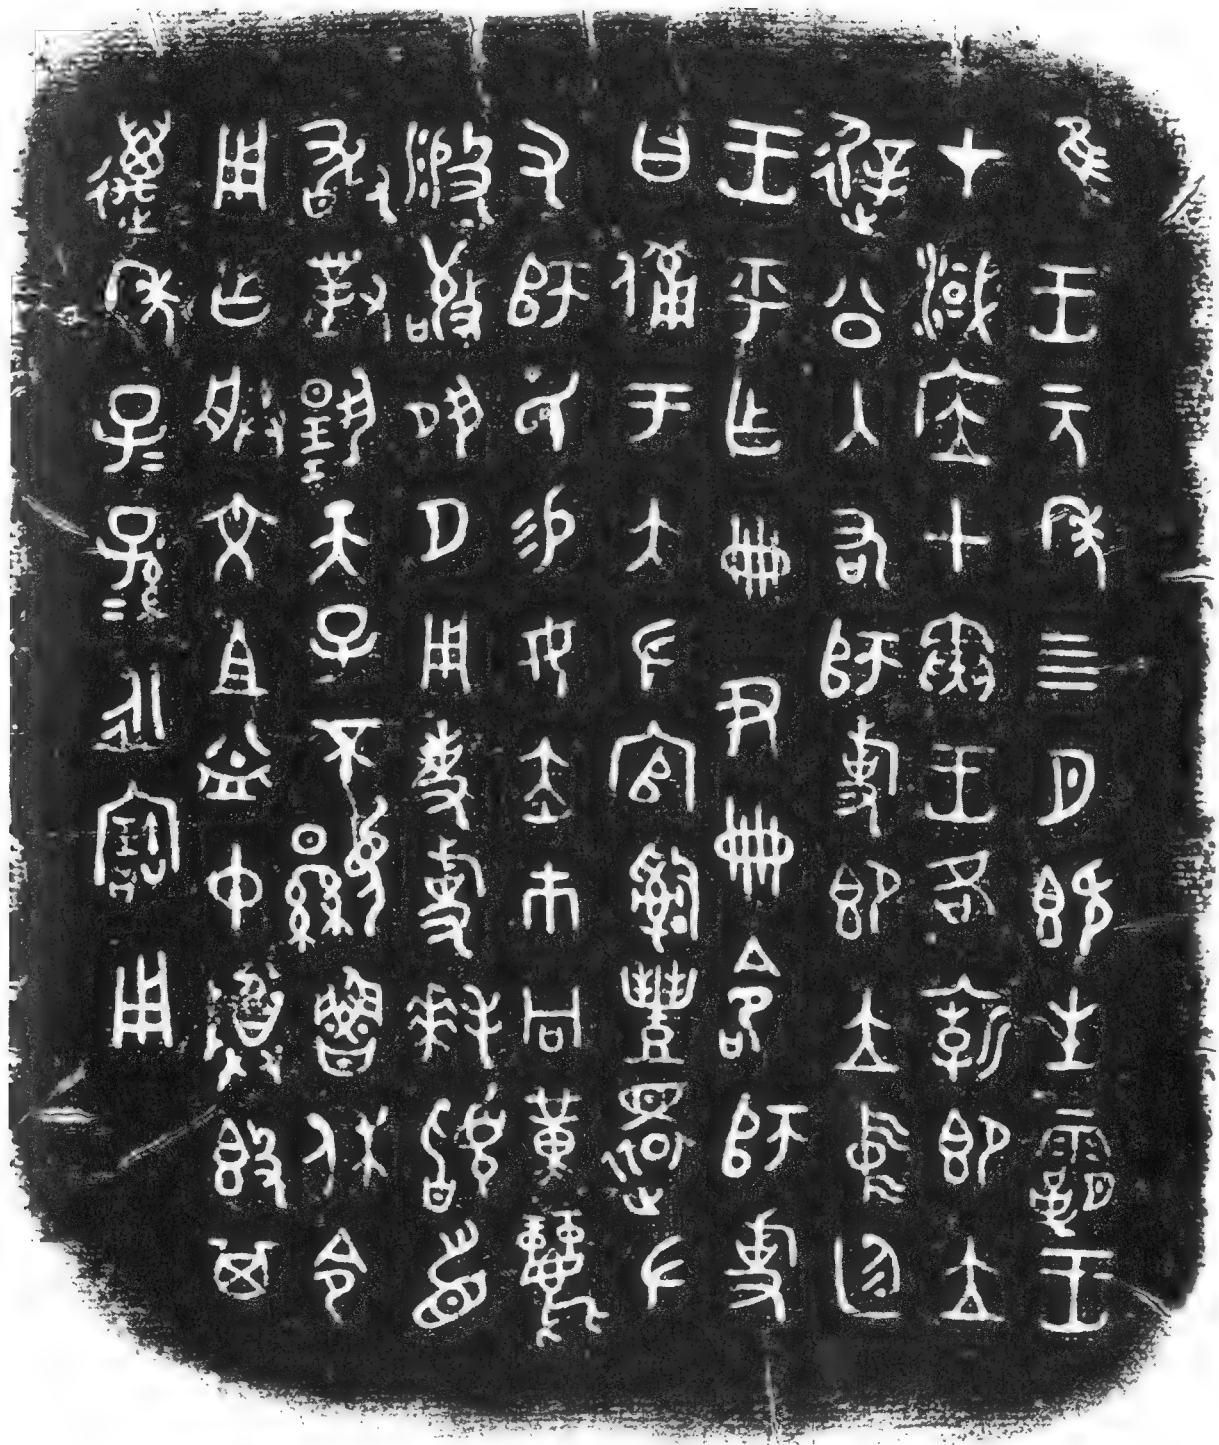 隹王元年四月既生霸王
才淢㡴甲寅王各廟即立
遟公入右師旋即立中廷
王乎乍冊尹冊命師旋
曰備于大左官𤔲豐還左
又師氏易女赤巿冋黃麗
般敬夙夕用事旋拜𩒨首
敢對揚天子不顯魯休令
用乍朕文且益中尊簋其
邁年子＝孫＝永寶用